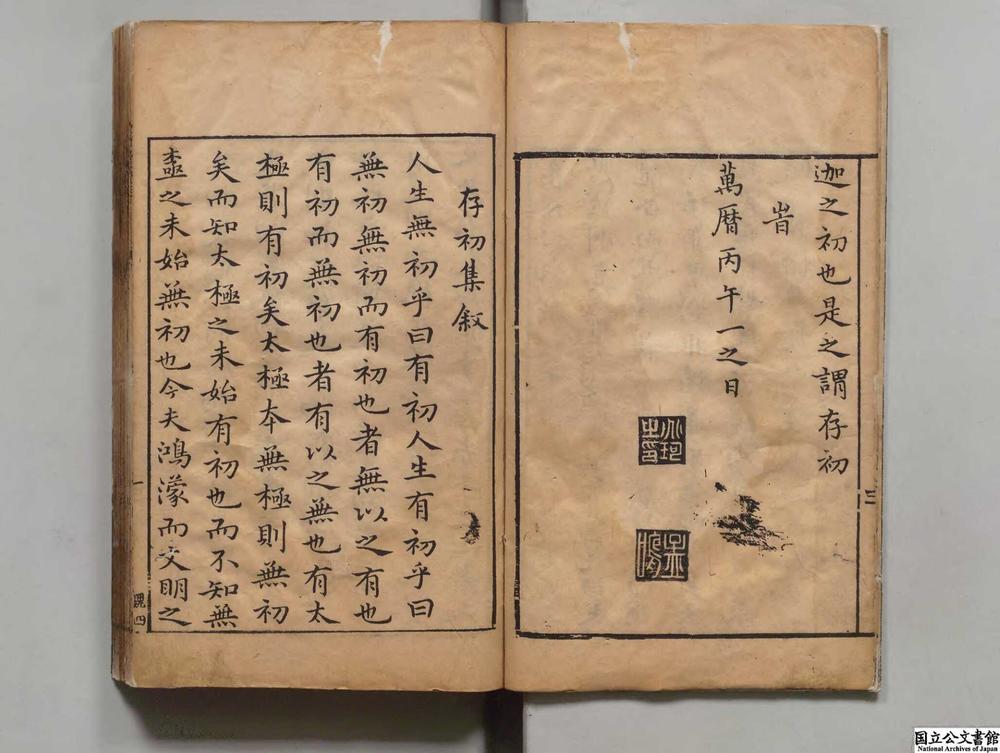 迦之初也是之謂存初
旹
萬曆丙午一之日
三
存初集叙
人生無初乎曰有初人生有初乎曰
無初無初而有初也者無以之有也
有初而無初也者有以之無也有太
極則有初矣太極夲無極則無初
矣而知太極之未始有初也而不知無
極之未始無初也今夫鴻濛而文明之
一
國立公文書館
National Archives of Japan